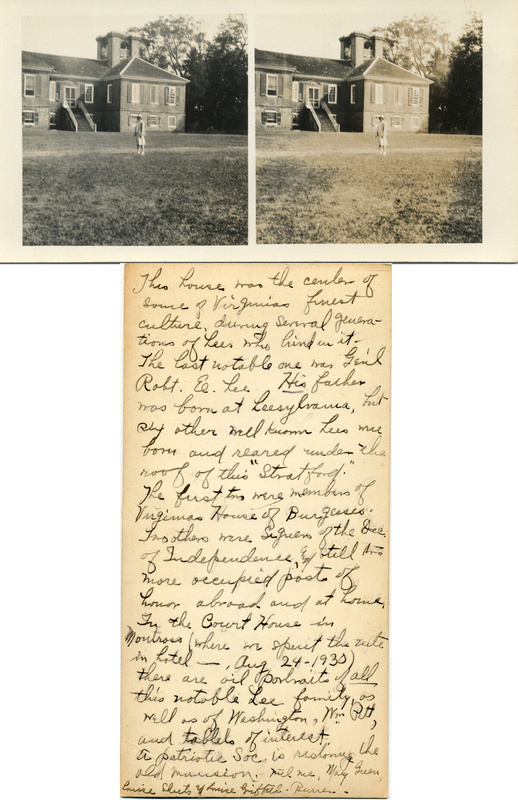 This house was the center of
some of Virginias finest
culture, during several genera-
tions of Lees who lived in it -
The last notable one was Gen'l
Robt. E. Lee. His father
was born at Leesylvania, but
six other well known Lees were
born and reared under the
roof of this "Stratford."
The first two were members of
Virginias House of Burgesses.
Two others were Signers of the Dec.
of Independence, & still two
more occupied posts of
honor abroad and at home.
In the Court House in
Montross (where we spent the nite
in hotel -, Aug. 24-1930)
there are oil portraits of all
this notable Lee family, as
well as of Washington, Wm Pitt,
and tablets of interest
A patriotic Soc. is restoring the
old mansion. me, May Green,
Louise